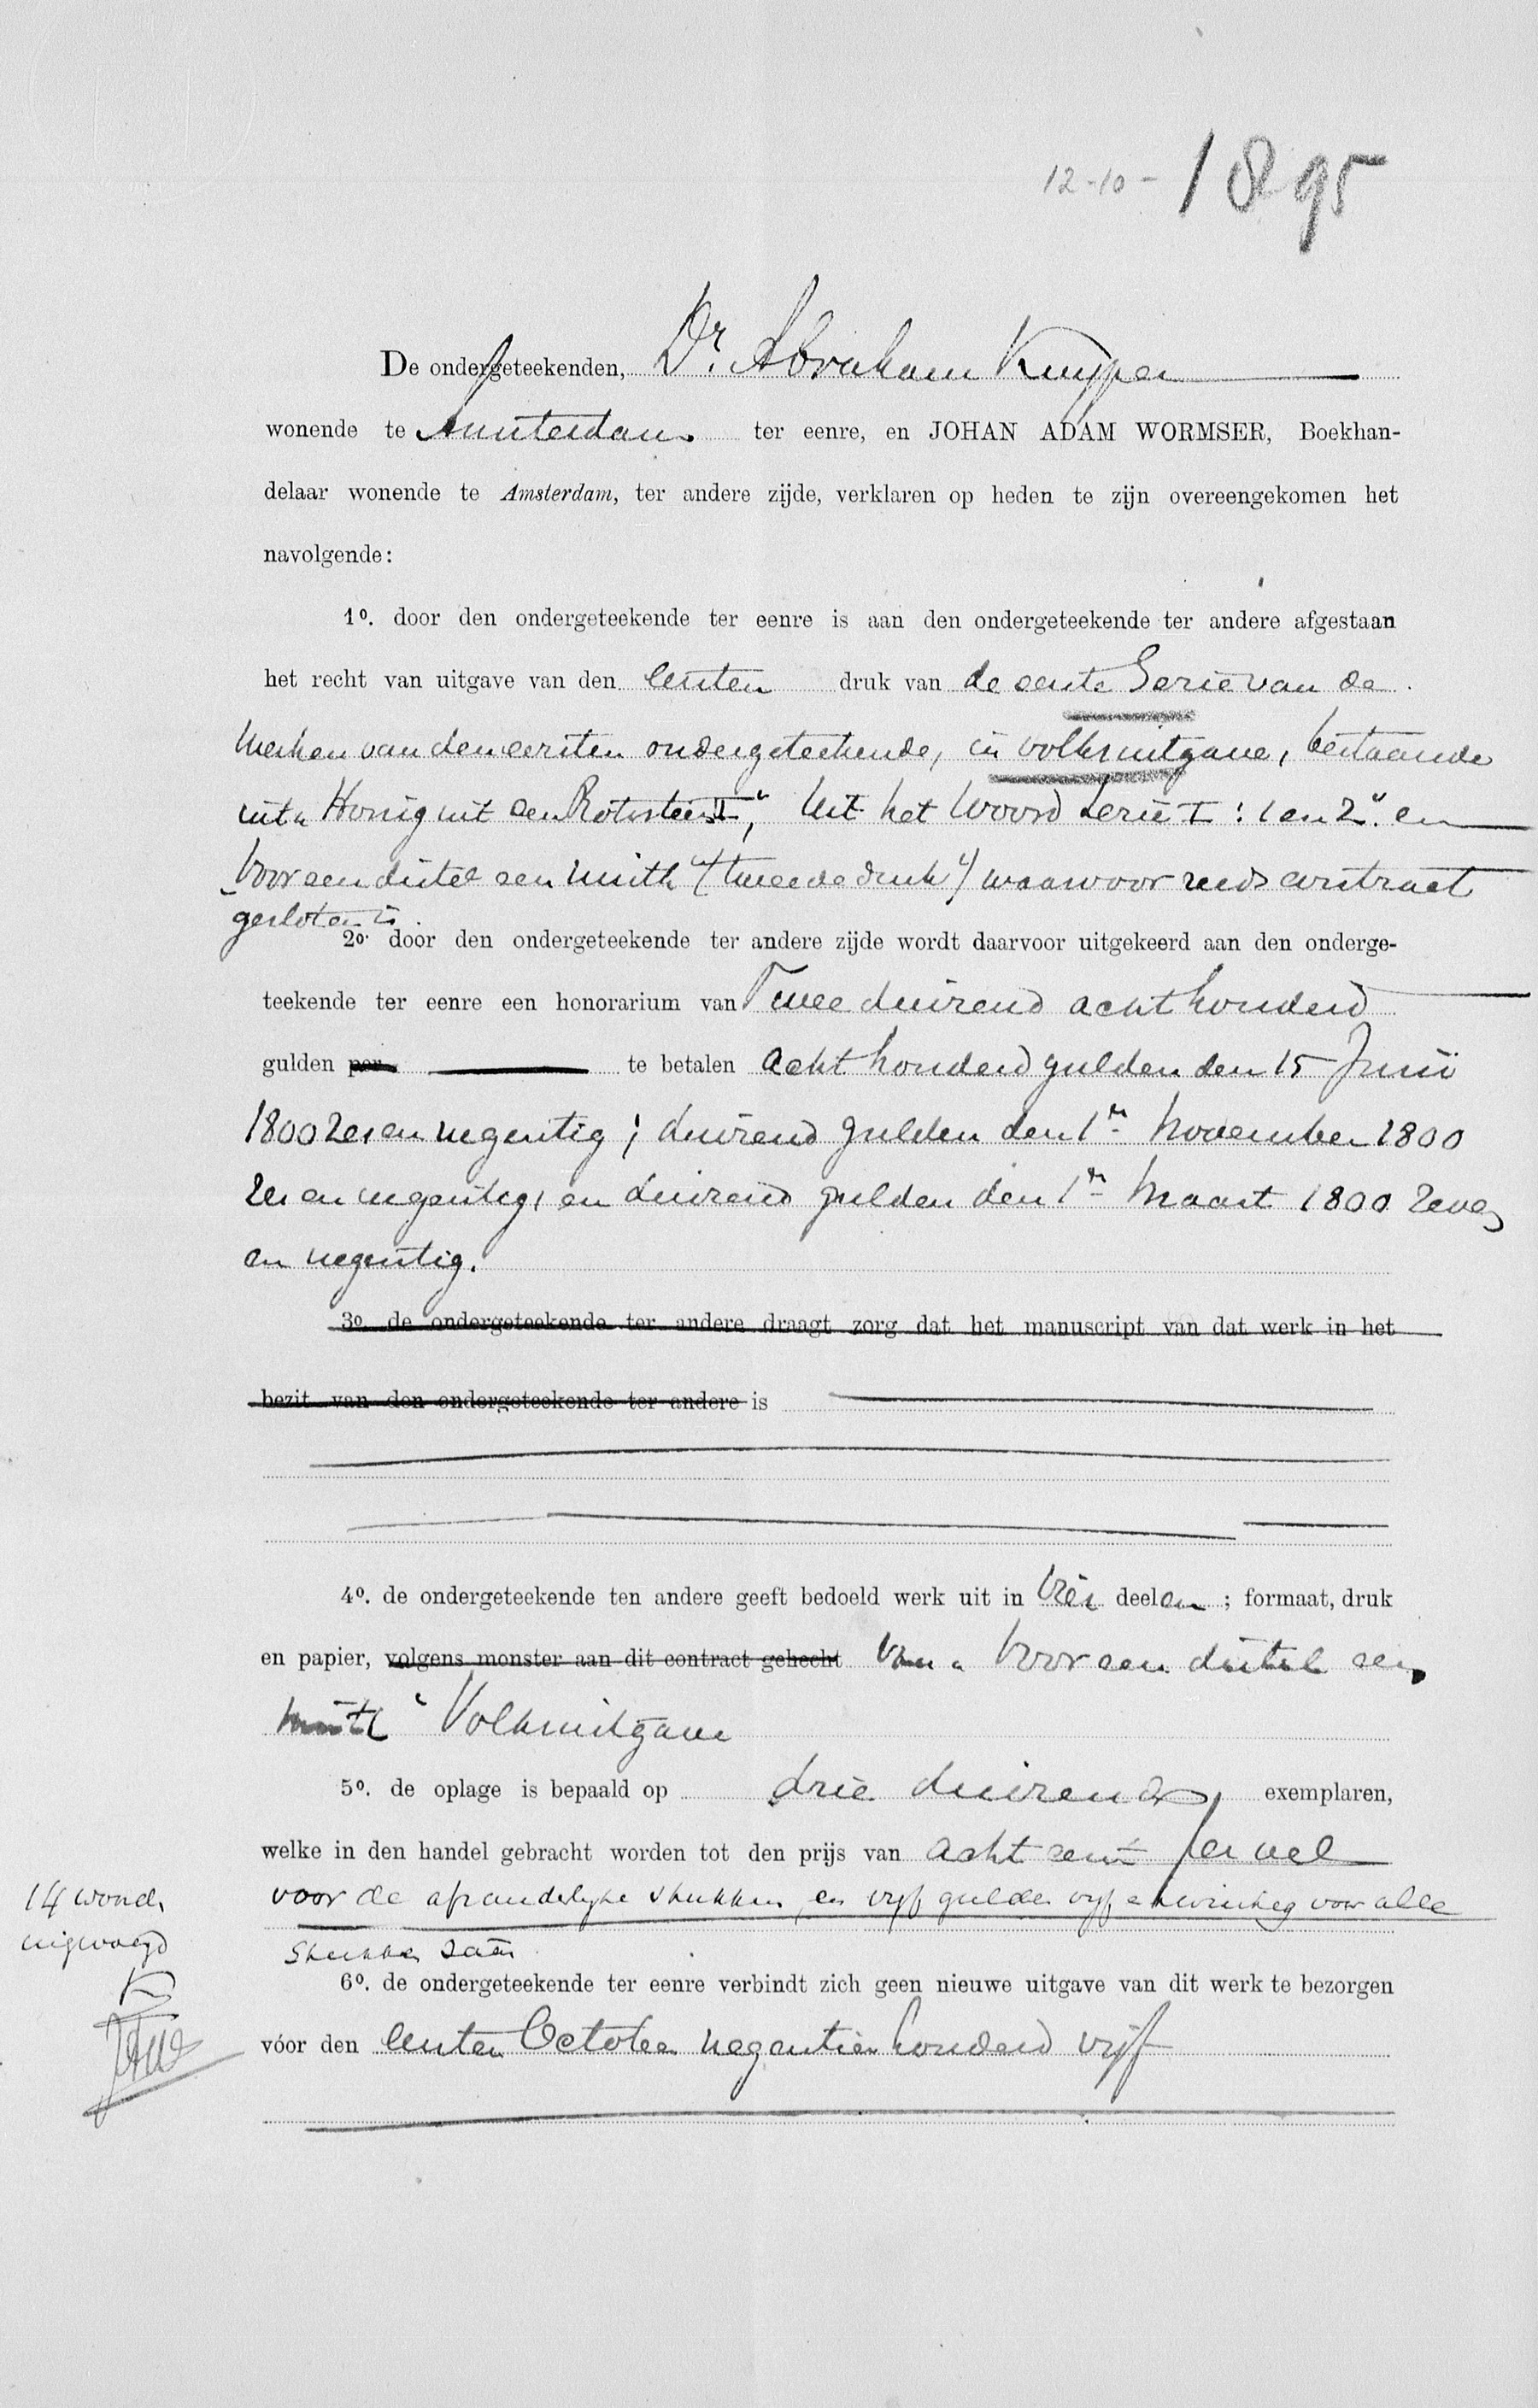 12-10-1895
De ondergeteekenden, Dr. Abraham Kuyper
wonende te Amsterdam ter eenre, en JOHAN ADAM WORMSER, Boekhan-
delaar wonende te Amsterdam, ter andere zijde, verklaren op heden te zijn overeengekomen het
navolgende:
1o. door den ondergeteekende ter eenre is aan den ondergeteekende ter andere afgestaan
het recht van uitgave van den eersten druk van de eerste Serie van de
Werken van den eersten ondergeteekende, in volksuitgave, bestaande
uit „Honig uit den Rotssteen I", Uit het Woord Serie I: 1 en 2". en
„Voor een distel een mirth" (tweede druk) waarvoor reeds contract
gesloten is.
2o. door den ondergeteekende ter andere zijde wordt daarvoor uitgekeerd aan den onderge-
teekende ter eenre een honorarium van Twee duizend acht honderd
gulden per te betalen acht honderd gulden den 15 Junii
1800 zes en negentig; duizend gulden den 1n November 1800
zes en negentig, en duizend gulden den 1n Maart 1800 zeven
en negentig.
3o. de ondergeteekende ter andere draagt zorg dat het manuscript van dat werk in het
bezit van den ondergeteekende ter andere is
4o. de ondergeteekende ten andere geeft bedoeld werk uit in deelen; formaat, druk
en papier, volgens monster aan dit contract gehecht van „Voor een distel een
mirth" Volksuitgave
5o. de oplage is bepaald op drie duizend exemplaren,
welke in den handel gebracht worden tot den prijs van acht cent per vel
voor de afzonderlijke stukken, en vijf gulden vijf en twintig voor alle
stukken saam.
14 woorden
bijgevoegd
K
JAW
6o. de ondergeteekende ter eenre verbindt zich geen nieuwe uitgave van dit werk te bezorgen
vóor den eersten October negentien honderd vijf